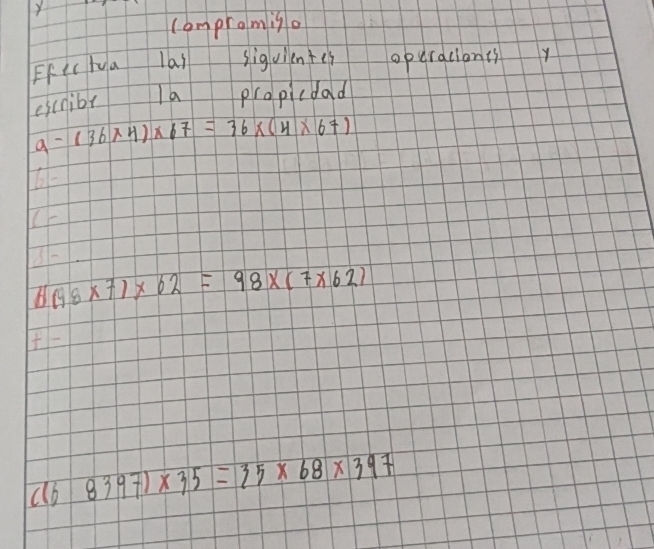 Compromiso
Efectua las siguientes operaciones y
escribe la propiedad
a - (36 x 4) x 67 = 36 x (4 x 67)
b -
c -
(98 x 7) x 62 = 98 x (7 x 62)
8397) x 35 = 35 x 68 x 397